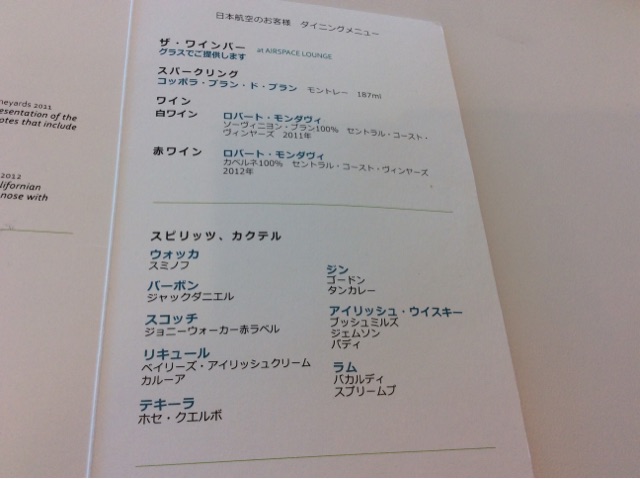 neyards 2011
esentation of the
otes that include
2012
lifornian
nose with
日本航空のお客様 ダイニングメニュー
ザ・ワインバー at AIRSPACE LOUNGE
グラスでご提供します
スパークリング
コッポラ・ブラン・ド・ブラン モントレー 187ml
ワイン
白ワイン ロバート・モンダヴィ
ソーヴィニヨン・ブラン100% セントラル・コースト・
ヴィンヤーズ 2011年
赤ワイン ロバート・モンダヴィ
カベルネ100% セントラル・コースト・ヴィンヤーズ
2012年
スピリッツ、カクテル
ウォッカ
スミノフ
バーボン
ジャックダニエル
スコッチ
ジョニーウォーカー赤ラベル
リキュール
ベイリーズ・アイリッシュクリーム
カルーア
テキーラ
ホセ・クエルボ
ジン
ゴードン
タンカレー
アイリッシュ・ウイスキー
ブッシュミルズ
ジェムソン
パディ
ラム
バカルディ
スプリームブ